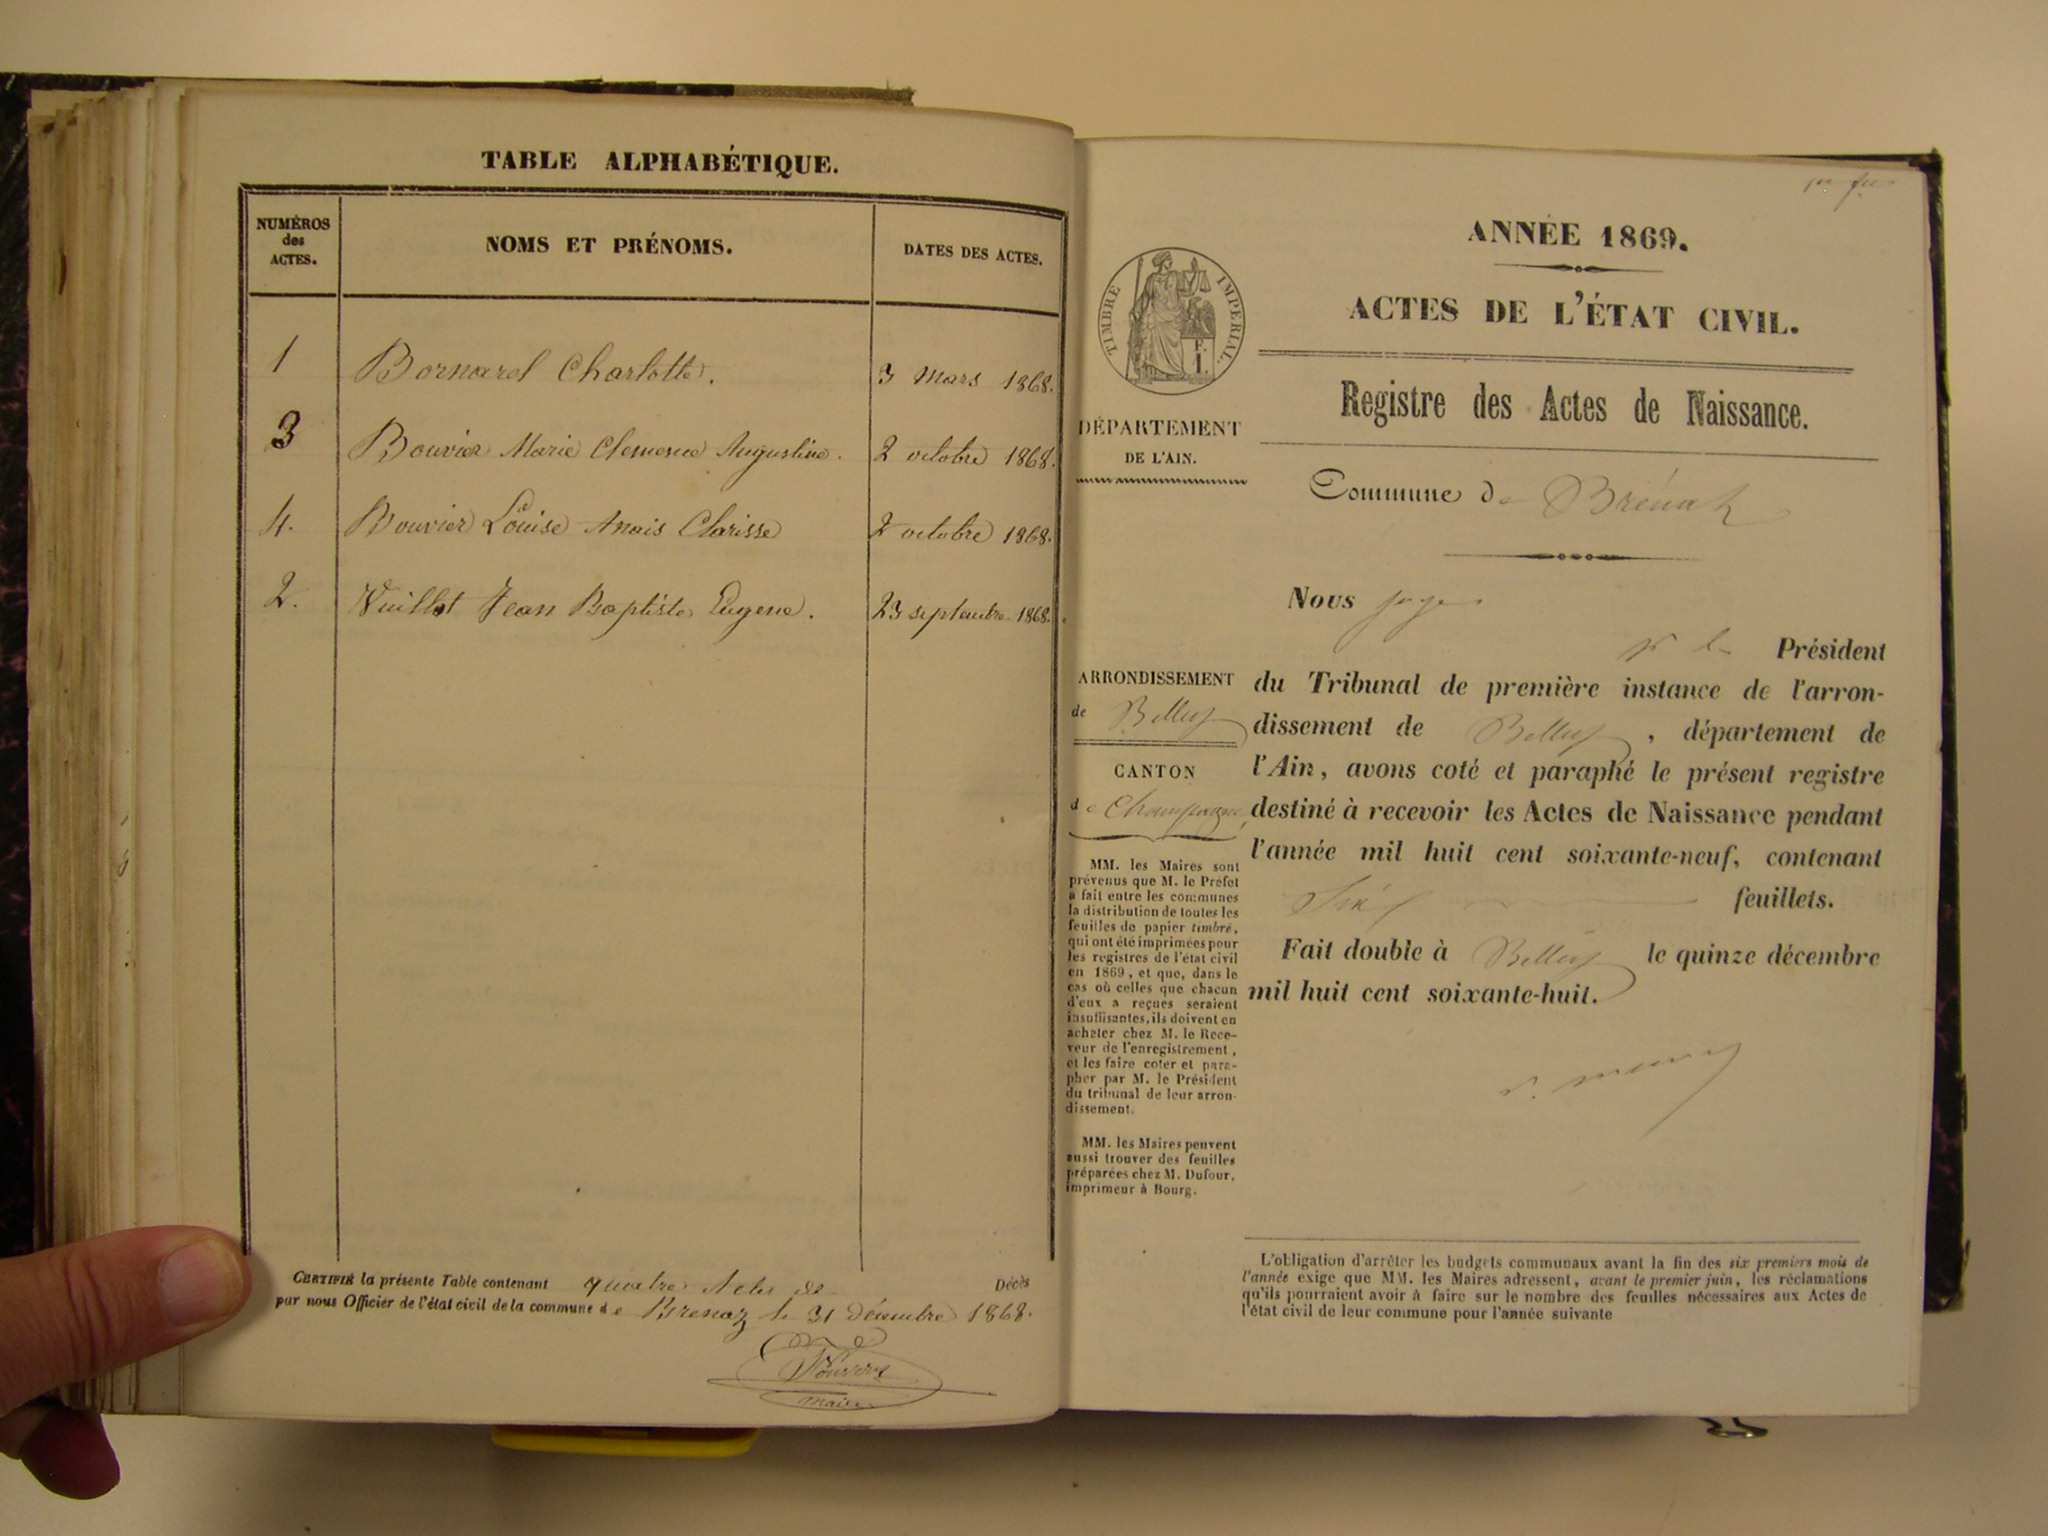 TABLE ALPHABÉTIQUE.
NUMÉROS
des
ACTES.
NOMS ET PRÉNOMS.
DATES DES ACTES.
1 Bornarel Charlotte. 3 Mars 1868.
3 Bouvier Marie Clemence Augustine. 2 octobre 1868.
4. Bouvier Louise Anais Clarisse 2 octobre 1868.
2. Vuillot Jean Baptiste Eugene. 23 septembre 1868.
CERTIFIÉ la présente Table contenant quatre Actes de Décès
par nous Officier de l'état civil de la commune de Brenaz le 31 décembre 1868.
Maire
ANNÉE 1869.
ACTES DE L'ÉTAT CIVIL.
TIMBRE IMPÉRIAL.
Registre des Actes de Naissance.
DÉPARTEMENT
DE L'AIN.
Commune de Brénaz
Nous juge
pr le Président
du Tribunal de première instance de l'arron-
dissement de Belley, département de
l'Ain, avons coté et paraphé le présent registre
destiné à recevoir les Actes de Naissance pendant
l'année mil huit cent soixante-neuf, contenant
Six feuillets.
Fait double à Belley le quinze décembre
mil huit cent soixante-huit.
ARRONDISSEMENT
de Belley
CANTON
de Champagne
MM. les Maires sont
prévenus que M. le Préfet
a fait entre les communes
la distribution de toutes les
feuilles de papier timbré,
qui ont été imprimées pour
les registres de l'état civil
en 1869, et que, dans le
cas où celles que chacun
d'eux a reçues seraient
insuffisantes, ils doivent en
acheter chez M. le Rece-
veur de l'enregistrement,
et les faire coter et para-
pher par M. le Président
du tribunal de leur arron-
dissement.
MM. les Maires peuvent
aussi trouver des feuilles
préparées chez M. Dufour,
imprimeur à Bourg.
L'obligation d'arrêter les budgets communaux avant la fin des six premiers mois de
l'année exige que MM. les Maires adressent, avant le premier juin, les réclamations
qu'ils pourraient avoir à faire sur le nombre des feuilles nécessaires aux Actes de
l'état civil de leur commune pour l'année suivante